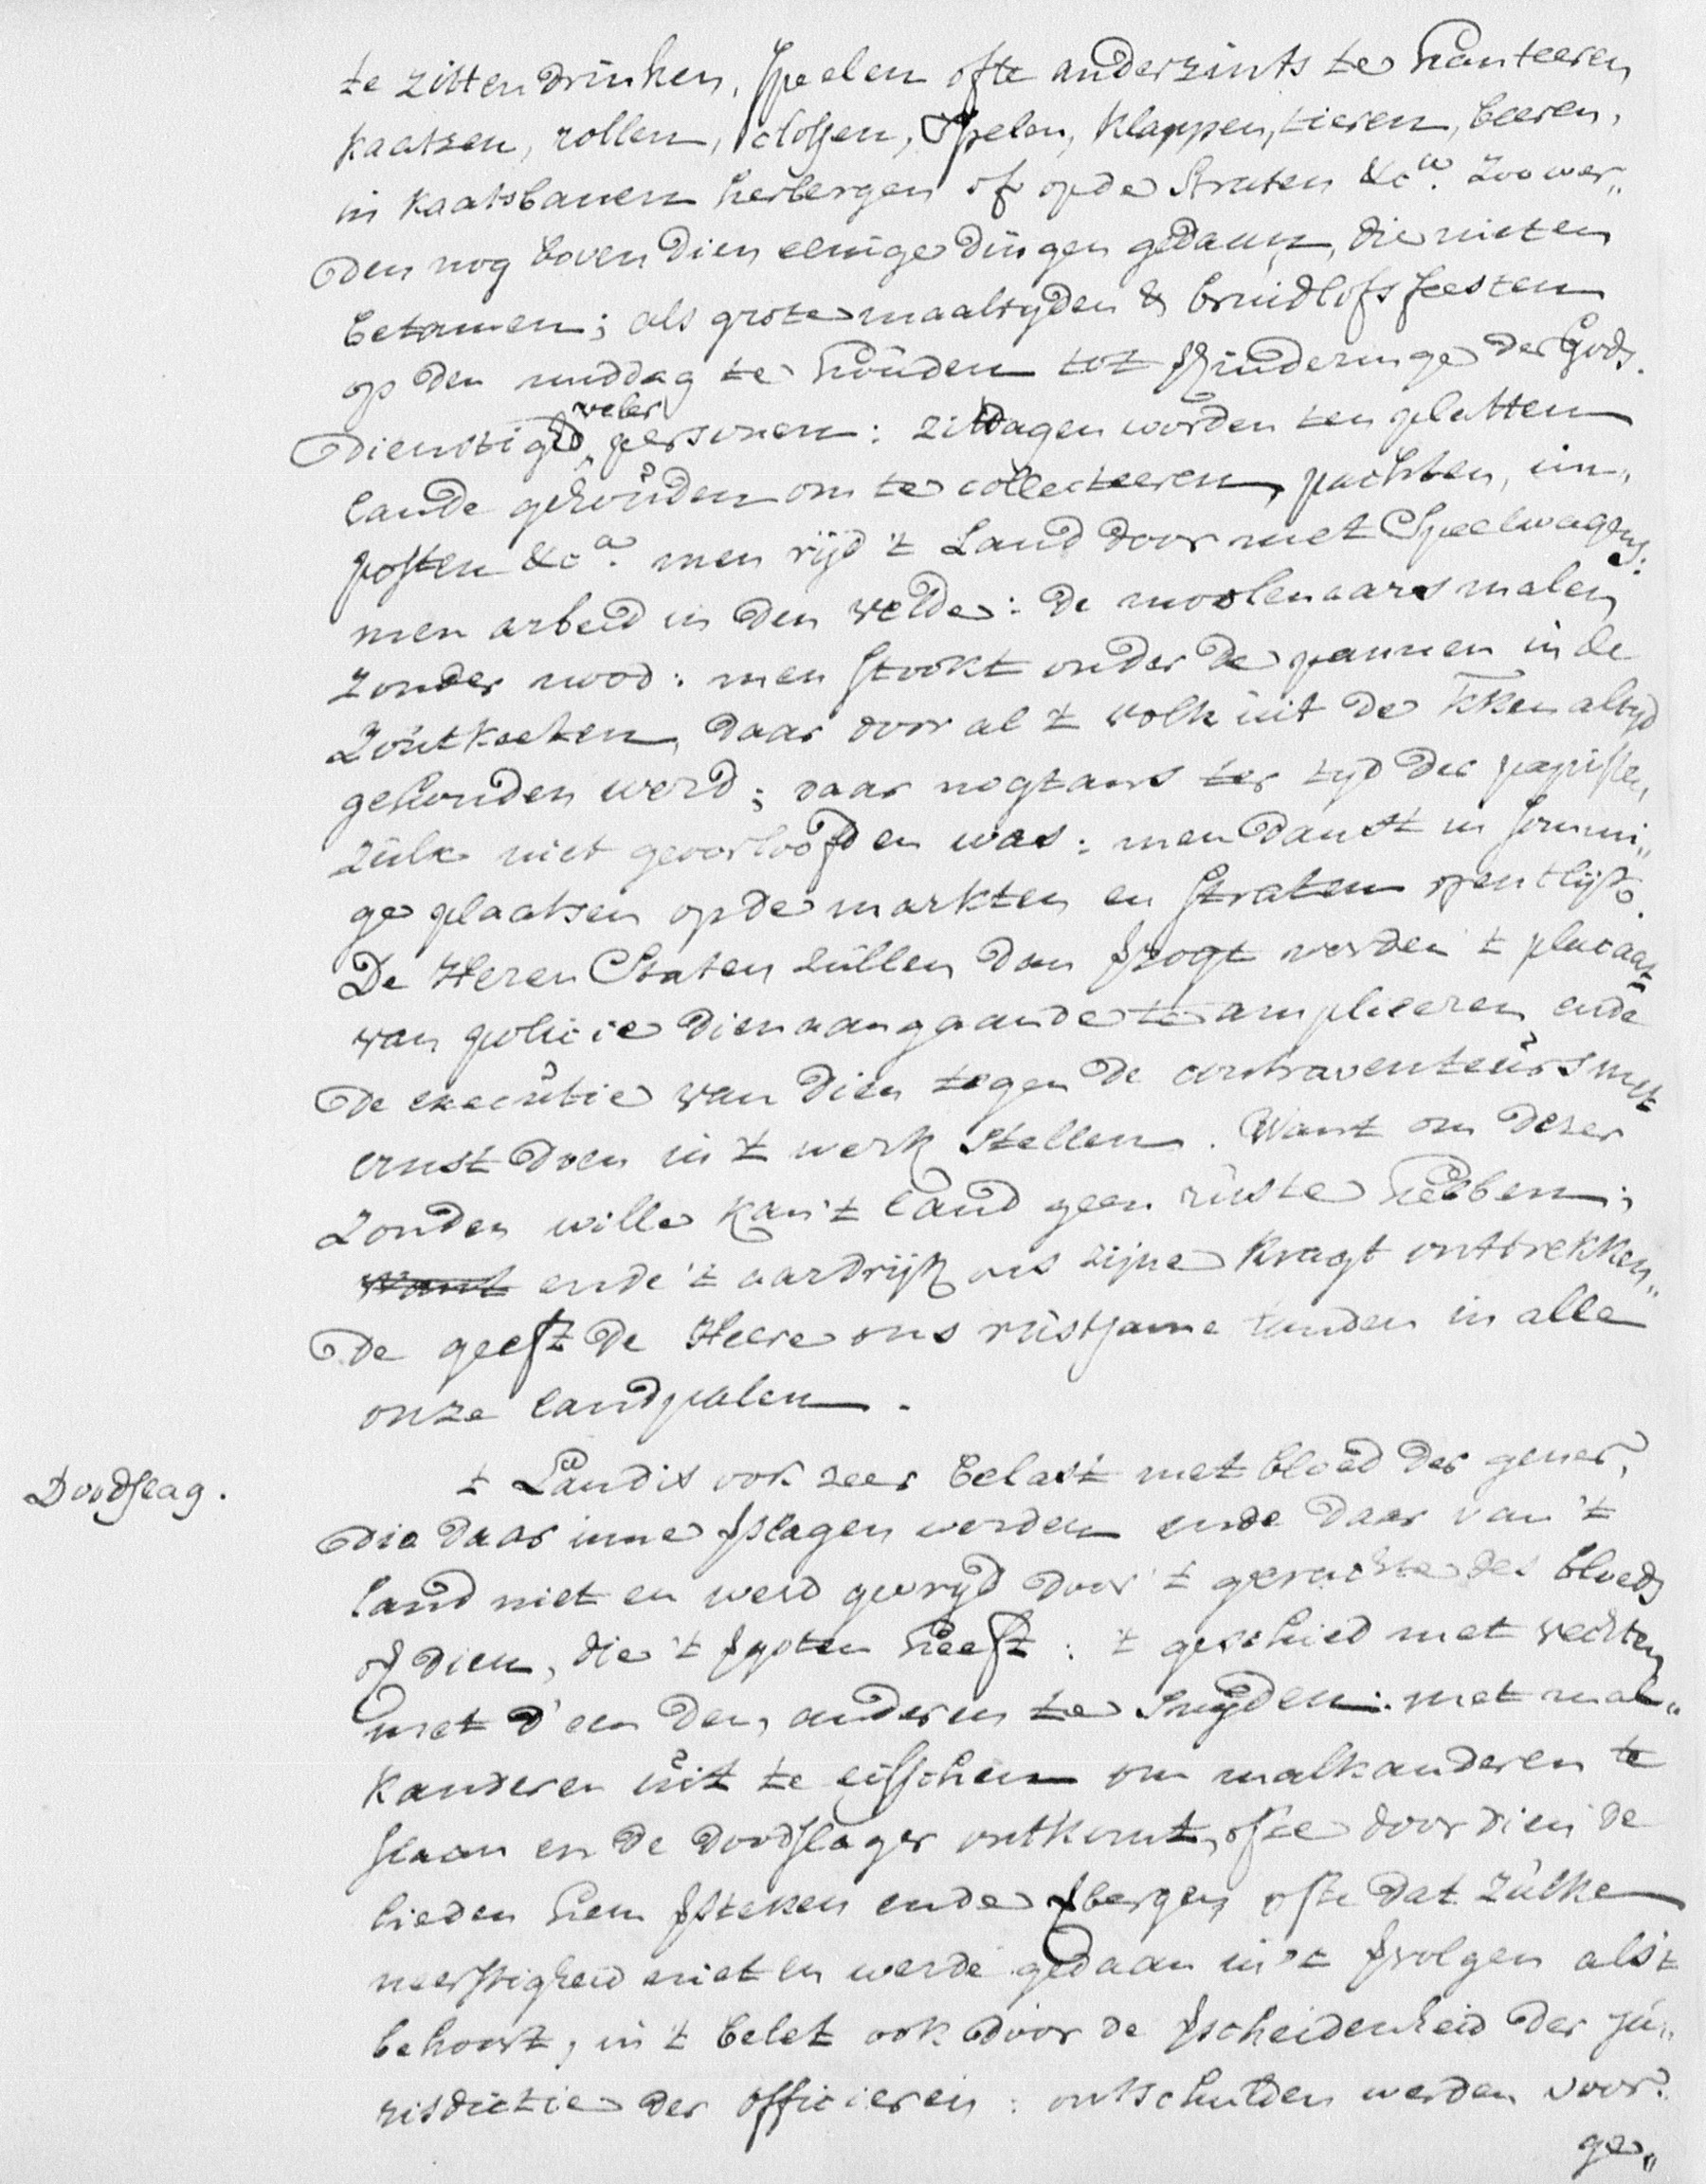 te zitten drinken, speelen ofte anderzints te hanteeren
kaatzen, rollen, clossen, spelen, klappen, tieren, beeren,
in kaatsbanen herbergen of op de straten &c.a zoo wer„
den nog boven dien eenige dingen gedaan, die niet en
betamen; als grote maaltyden & bruidlofs feesten
op den middag te houden tot hinderinge der Gods
dienstigh. veler personen: zitdagen worden ten platten
lande gehouden om te collecteeren, pachten, im„
posten &c.a men rijd 't Land door met Speelwagens:
men arbeid in den velde: de moolenaars malen
zonder nood: men stookt onder de pannen in de
Zoutkeeten, daar door al 't volk uit de kken altyd
gehouden werd; daar nogtans ter tyd der papisten
zulx niet geoorloofd en was: men danst in sommi„
ge plaatsen op de markten en straten opentlijk.
De Heren Staten zullen dan vzogt werden 't placaat
van policie dien aangaande te ampliëeren ende
de executie van dien tegen de contraventeurs met
ernst doen in 't werk stellen. Want om dezer
zonden wille kan 't land geen ruste hebben;
want ende 't aardrijk ons zijne kragt onttrekken„
de geeft de Heere ons rustsame landen in alle
onze landpalen.
Doodslag.
't Land is ook zeer belast met bloed der gener,
die daar inne vslagen werden ende daar van 't
land niet en werd gevrijd door 't gerechte des bloeds
of dien, die 't vgoten heeft: 't geschied met vechten
met d'een den anderen te snyden: met mal„
kanderen uit te eisschen om malkanderen te
slaan en de doodslager ontkomt, ofte door dien de
lieden hem vsteken ende vbergen ofte dat zulke
neerstigheid niet en werde gedaan in 't vvolgen als 't
behoort, in 't belet ook door de vscheidenheid der ju„
risdictie der officieren: ontschulden werden voor
ge„